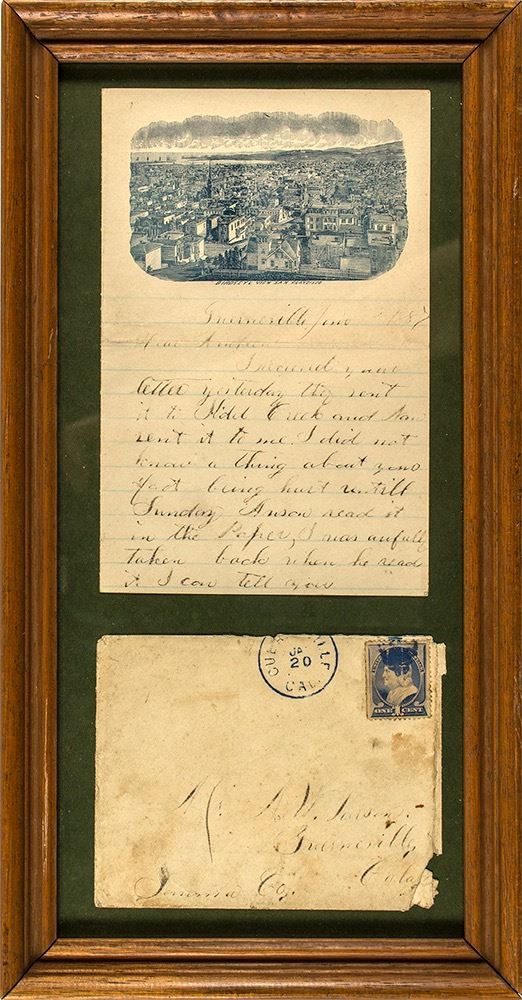 BIRDSEYE VIEW SAN FRANCISCO
Guerneville
Dear
I received your
letter yesterday they sent
it to Mill Creek and
sent it to me I did not
know a thing about your
foot being hurt untill
Sunday Anson read it
in the Paper, I was awfully
taken back when he read
it I can tell you
GUERNEVILLE
JA
20
CAL
ONE 1 CENT
Mr. A. W.
Guerneville
Sonoma Co. Cala